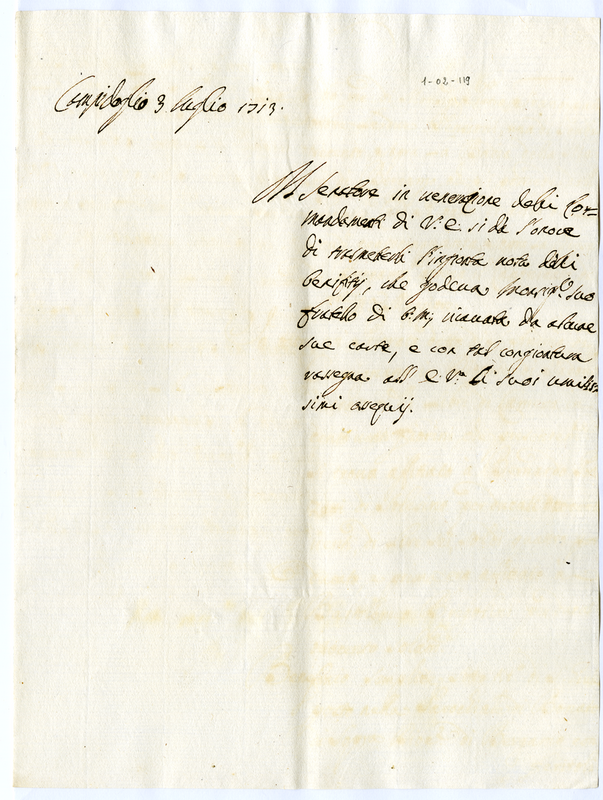 1-02-119
Campidoglio 3 luglio 1713.
Il Senatore in venerazione delli Com=
mandamenti di V. E. si dà l'onore
di trasmeterli l'ingionta nota delli
benifitij, che godeva Monsig.r suo
fratello di b. m., ricavata da alcune
sue carte, e con tal congiontura
rassegna all' E. V.ra li suoi umilis=
simi ossequij.